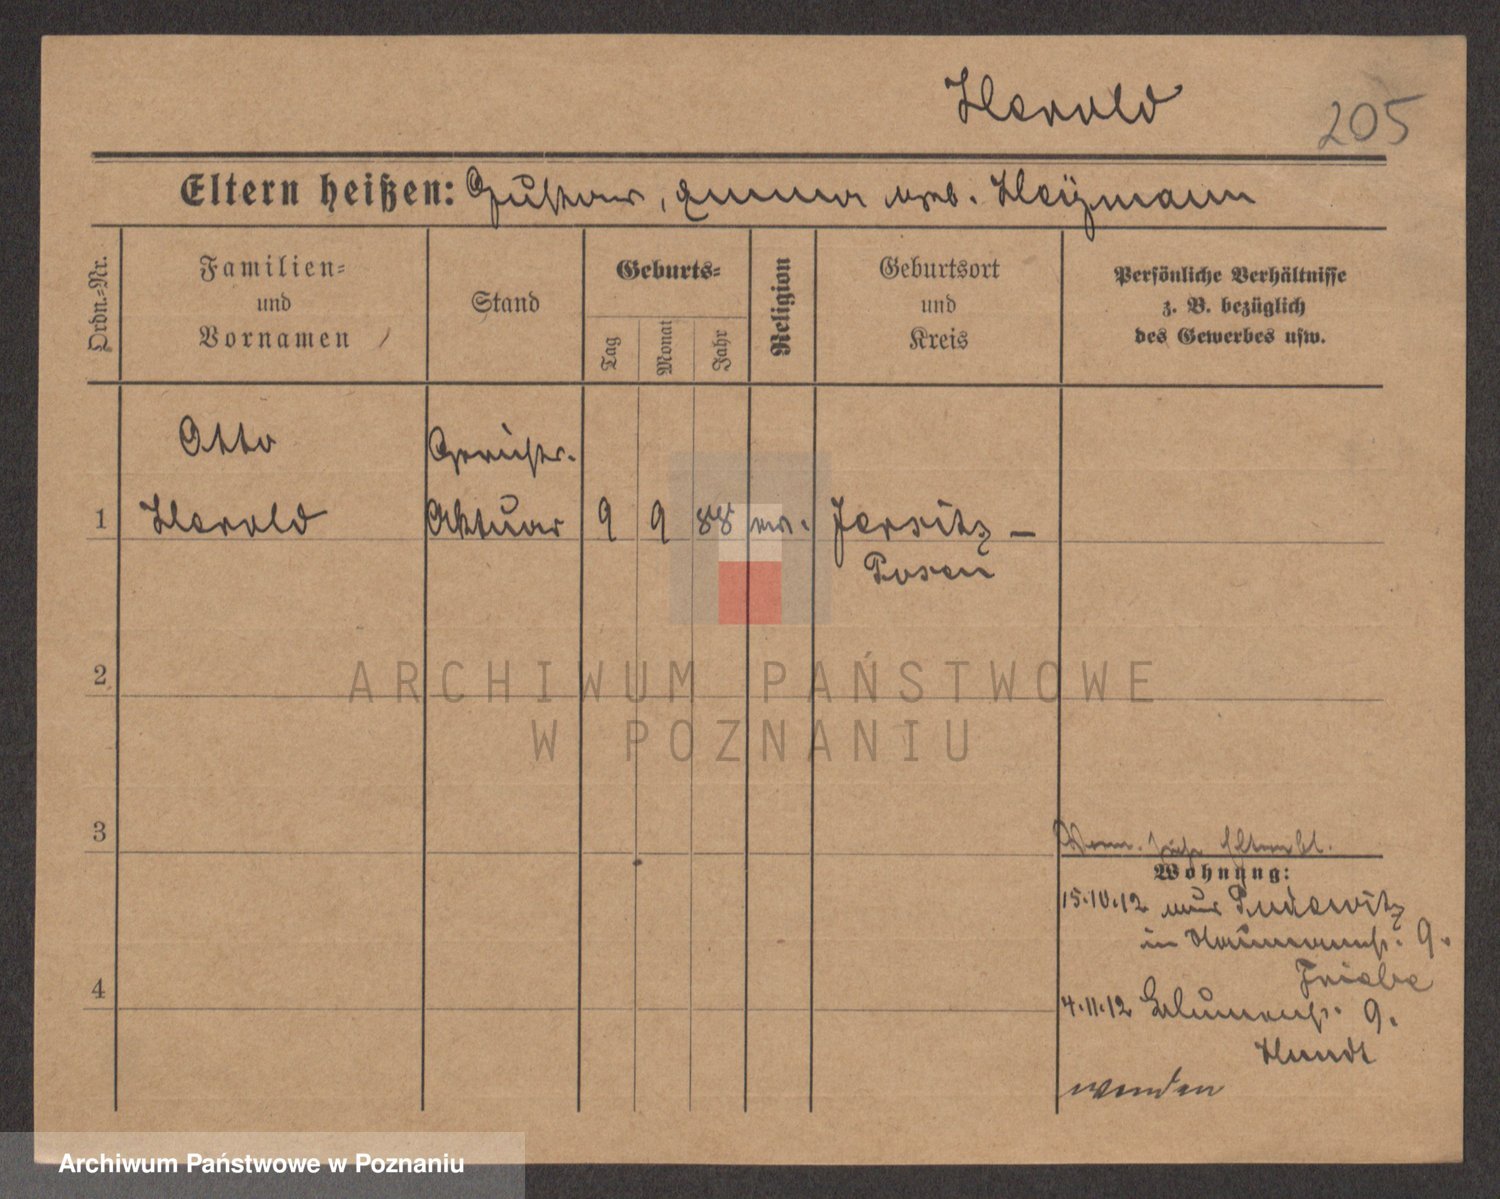 Herold
205
Eltern heißen: Gustav, Emma geb. Heymann
Ordn.=Nr.
Familien=
und
Vornamen
Stand
Geburts=
Tag
Monat
Jahr
Religion
Geburtsort
und
Kreis
Persönliche Verhältnisse
z. B. bezüglich
des Gewerbes usw.
Otto
Gerichts-
1
Herold
Aktuar
9
9
88
ev.
Jersitz –
Posen
2
ARCHIWUM PAŃSTWOWE
W POZNANIU
3
Wohnung:
15.10.12 aus Pudewitz
in Naumannstr. 9.
Friebe
4
4.11.12 Blumenstr. 9.
Hundt
wenden
Archiwum Państwowe w Poznaniu